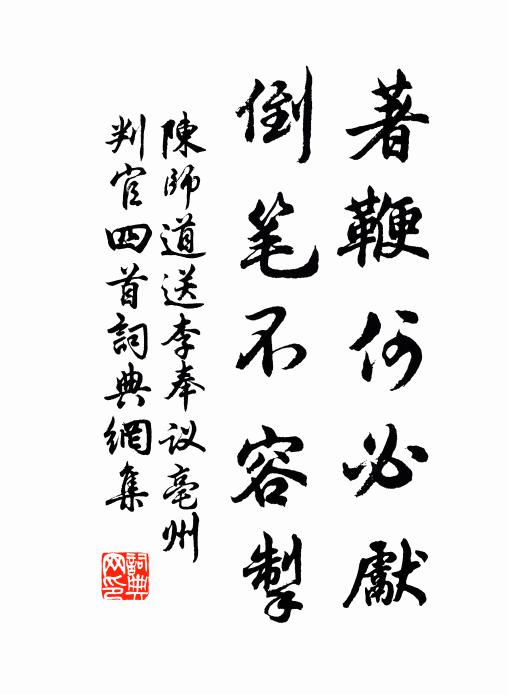 著鞭何必獻
倒笔不容掣
陳師道送李奉议亳州
判官四首詞典網集
詞典网印